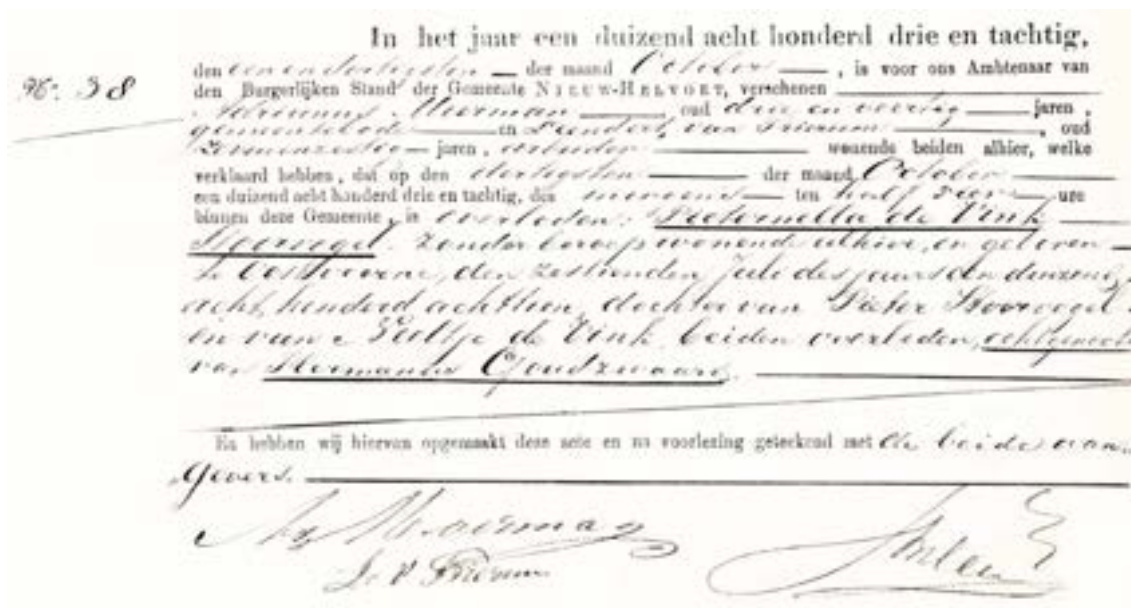 In het jaar een duizend acht honderd drie en tachtig,
No. 38
den eenendertigsten der maand October, is voor ons Ambtenaar van
den Burgerlijken Stand der Gemeente NIEUW-HELVOET, verschenen
Adrianus Moerman oud drie en veertig jaren,
gemeentebode en Leendert van Trierum, oud
zevenenzestig jaren, arbeider wonende beiden alhier, welke
verklaard hebben, dat op den dertigsten der maand October
een duizend acht honderd drie en tachtig, des morgens ten half vier ure
binnen deze Gemeente, is overleden: Pieternella de Vink
Hoorvogel. Zonder beroep wonende alhier, en geboren
te Oostvoorne, den zestienden Juli des jaars een duizend
acht honderd achttien, dochter van Pieter Hoorvogel
en van de Vink, beiden overleden, echtgenoote
van Hermanus Goudzwaard.
En hebben wij hiervan opgemaakt deze acte en na voorlezing geteekend met de beide aan-
gevers.
Moerman
L v Trierum